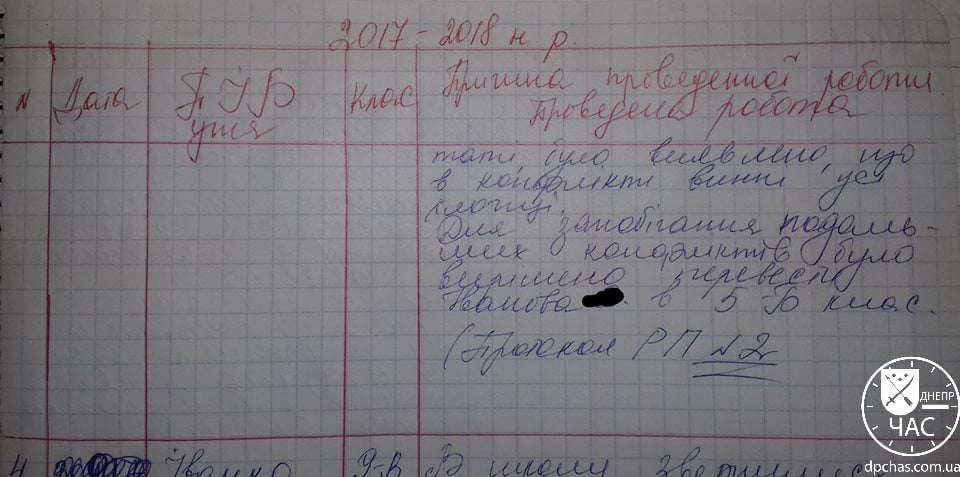 2017-2018 н. р.
N Дата П І Б учня Клас Причина проведенної роботи
Проведена робота
таті було виявлено, що
в конфлікті винні усі
хлопці.
Для запобігання подаль-
ших конфліктів було
вирішено перевести
Іванова в 5-Б клас.
(Протокол РП №2
4 9-В В школу звернулися
ДНЕПР
ЧАС
dpchas.com.ua